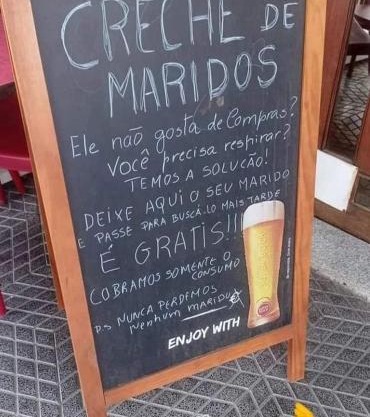 CRECHE DE
MARIDOS
Ele não gosta de Compras?
Você precisa respirar?
TEMOS A SOLUCÃO!
DEIXE AQUI O SEU MARIDO
E PASSE PARA BUSCÁ-LO MAIS TARDE
É GRATIS!!!
COBRAMOS SOMENTE O
CONSUMO
P.S NUNCA PERDEMOS
Nenhum MARIDO
ENJOY WITH